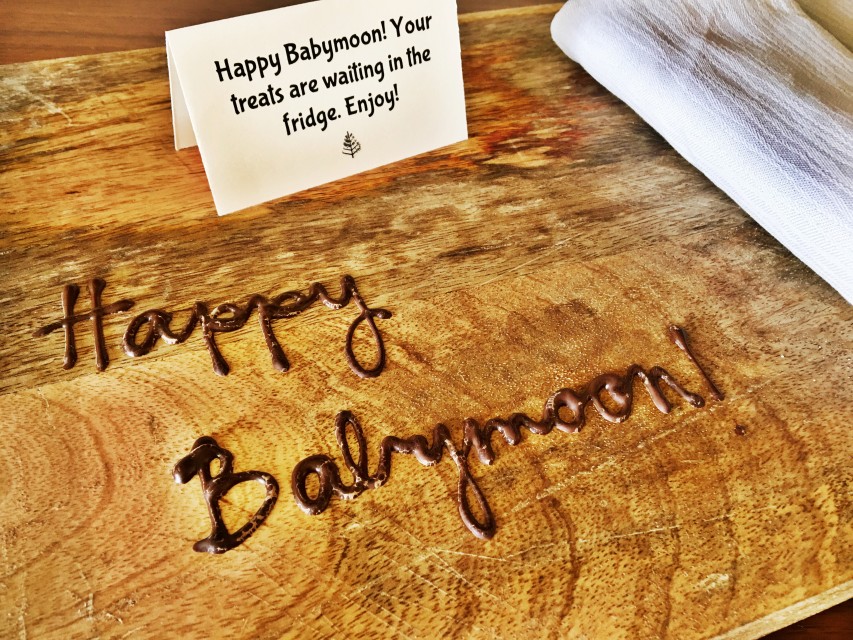 Happy Babymoon! Your
treats are waiting in the
fridge. Enjoy!
Happy
Babymoon!